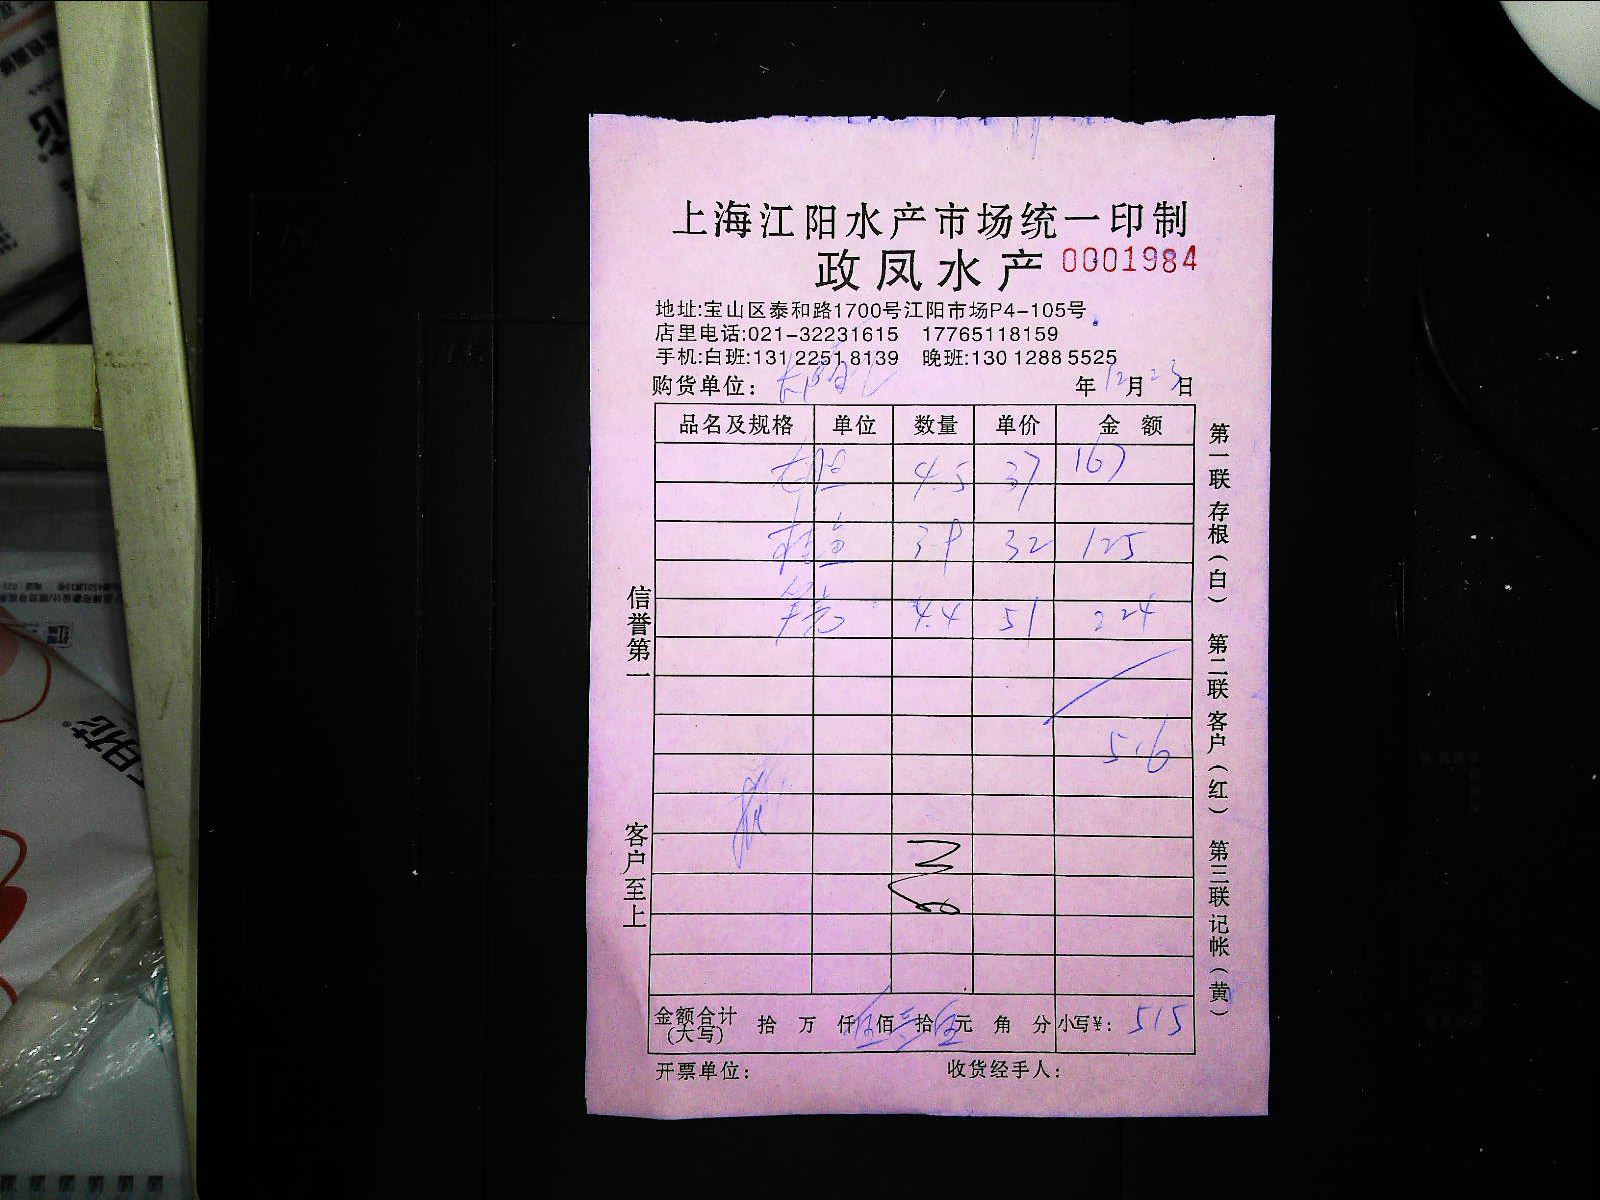 上海江阳水产市场统一印制
政凤水产 0001984
地址:宝山区泰和路1700号江阳市场P4-105号
店里电话:021-32231615 17765118159
手机:白班:131 2251 8139 晚班:130 1288 5525
购货单位:
年 12 月 23 日
品名及规格 单位 数量 单价 金 额
4.5 37 167
桂鱼 3.9 32 125
4.4 51 224
516
金额合计(大写) 拾 万 仟 伍 佰 拾 伍 元 角 分 小写¥: 515
开票单位: 收货经手人:
信誉第一
客户至上
第一联 存根(白) 第二联 客户(红) 第三联 记帐(黄)